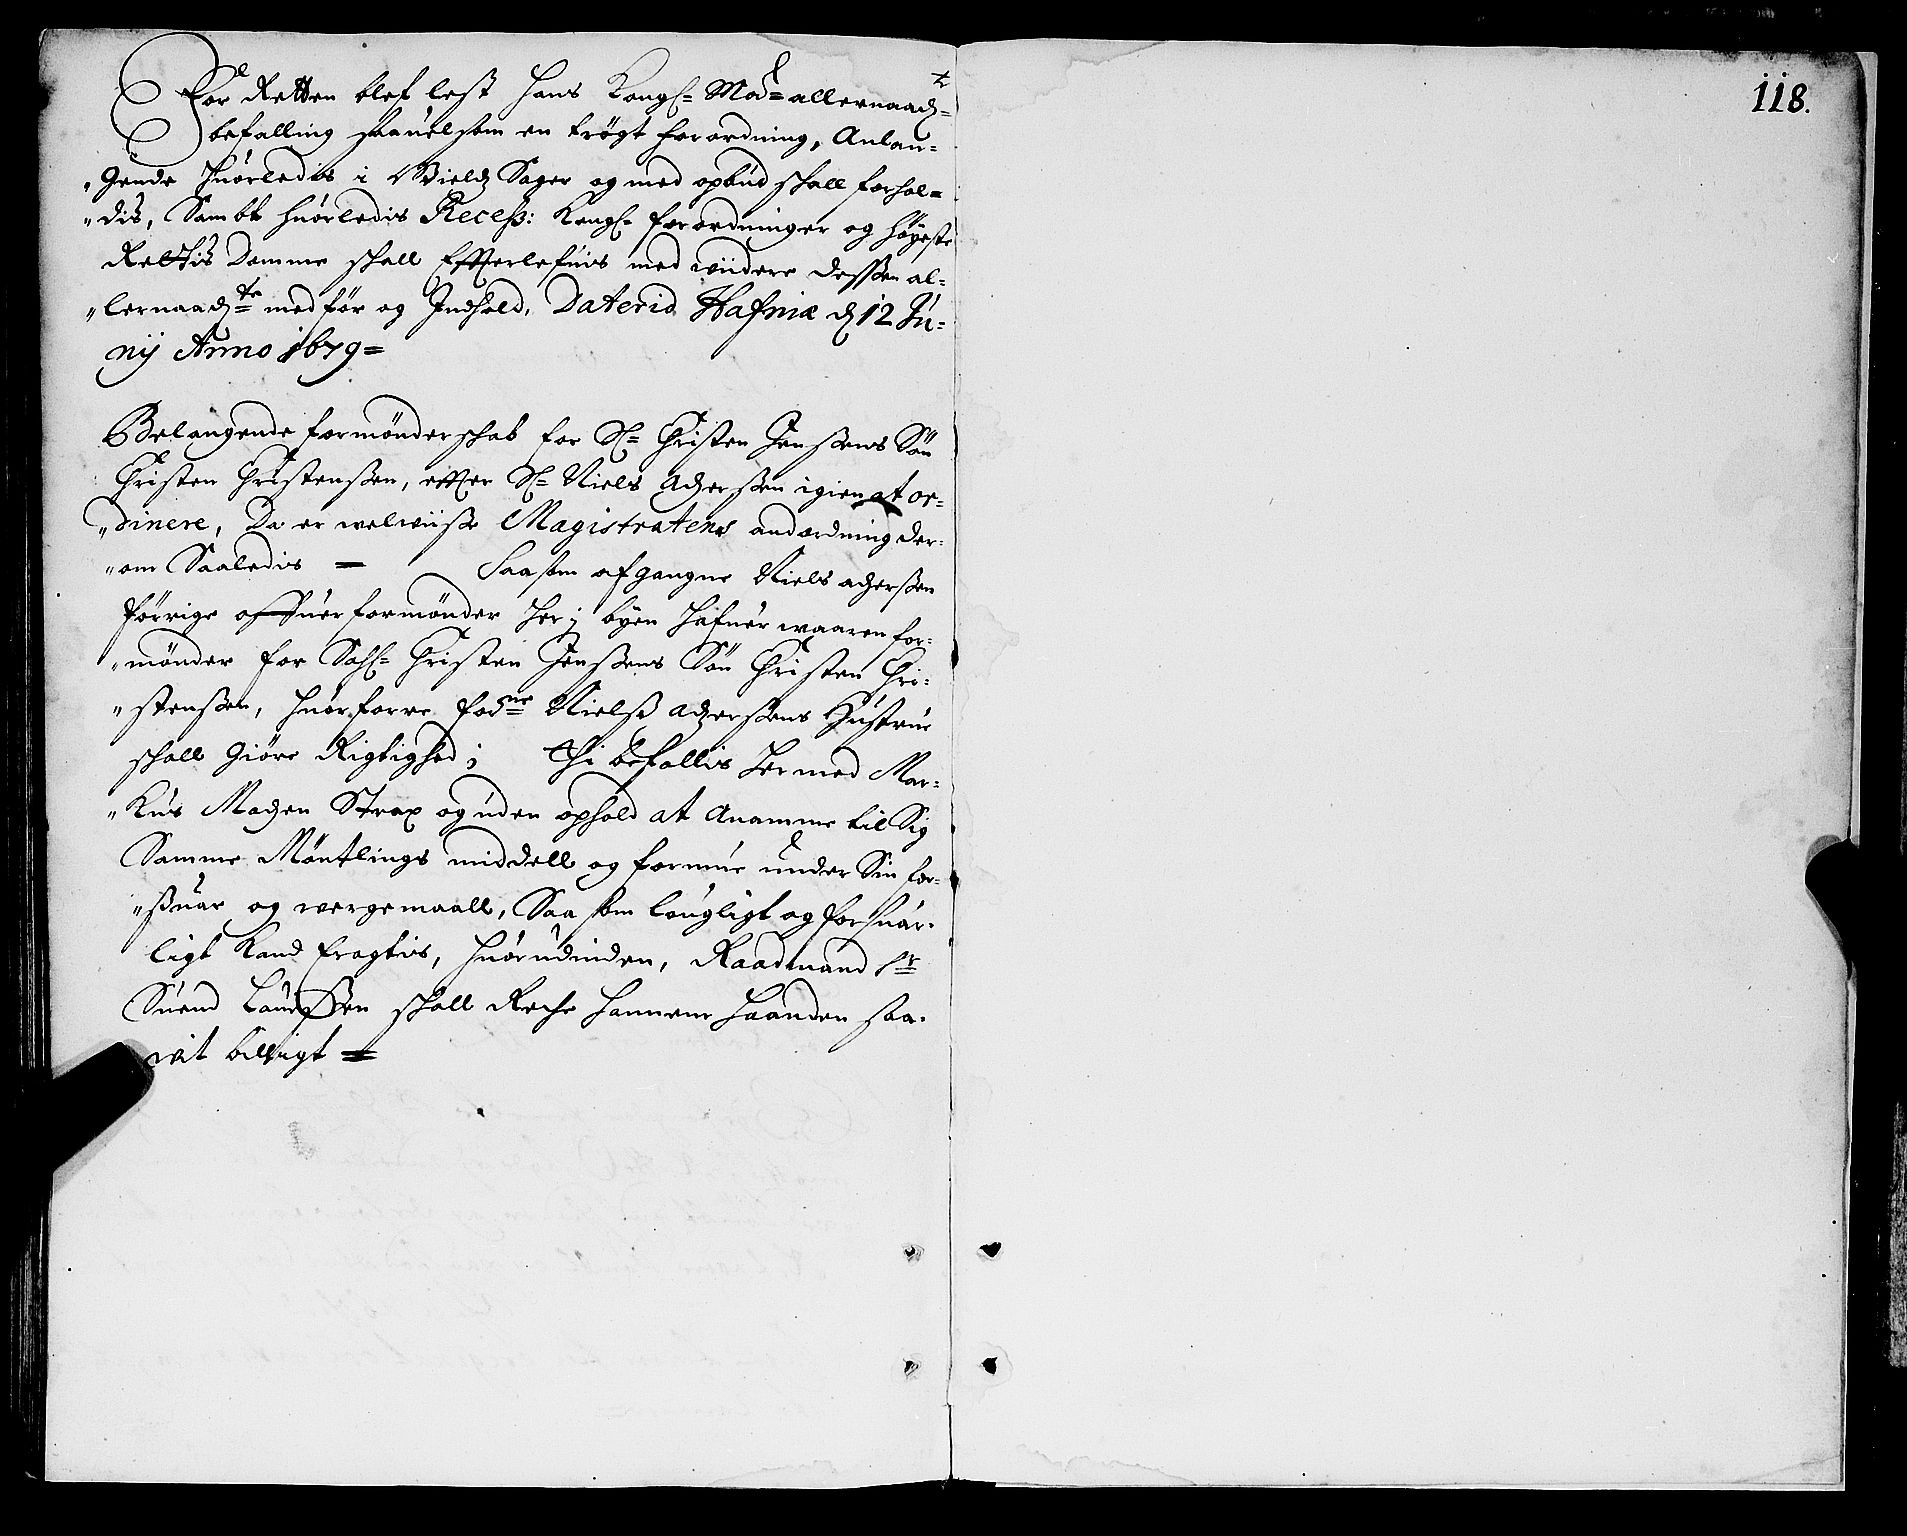 For Retten blef lest Hans Kongl= Mad= allernaad=
befalling saauelsom en trøgt forordning, Anlan=
"gende huorledis i Gields Sager og med opbud skall forhol=
"dis, Sambt huorledis Recess: Kongl= forordninger og høyeste
Rettis Domme skall Effterlefuis med widere dessen al=
"lernaadte medfør og Indhold, Daterid Hafniæ d 12 Ju=
nij Anno 1679=
Belangende formønderskab for Sl= Christen Jenssens Søn
Christen Christenssen, effter Sl= Niels Adzerssen igien at or=
"dinere, Da er welwiise Magistratens andordning der=
"om Saaledis = Saasom afgangne Niels adzerssen
forrige offuerformønder her i byen hafuer waaren for=
"mønder for Sahl= Christen Jenssens Søn Christen Chri=
"stenssen, huorforre fodne Nielss adzerssens Hustrue
skall giøre Rigtighed; Thi befallis hermed Mar=
"kus Madzen Strax og uden ophold at Anamme til Sig
Samme Møntlings middell og formue under Sin for=
"suar og wergemaall, Saa som lougligt og forsuar=
ligt Kand Eragtis, huorudinden, Raadmand Sr
Suend Laurssen skall Reche hannem haanden saa=
wit billigt =
118.